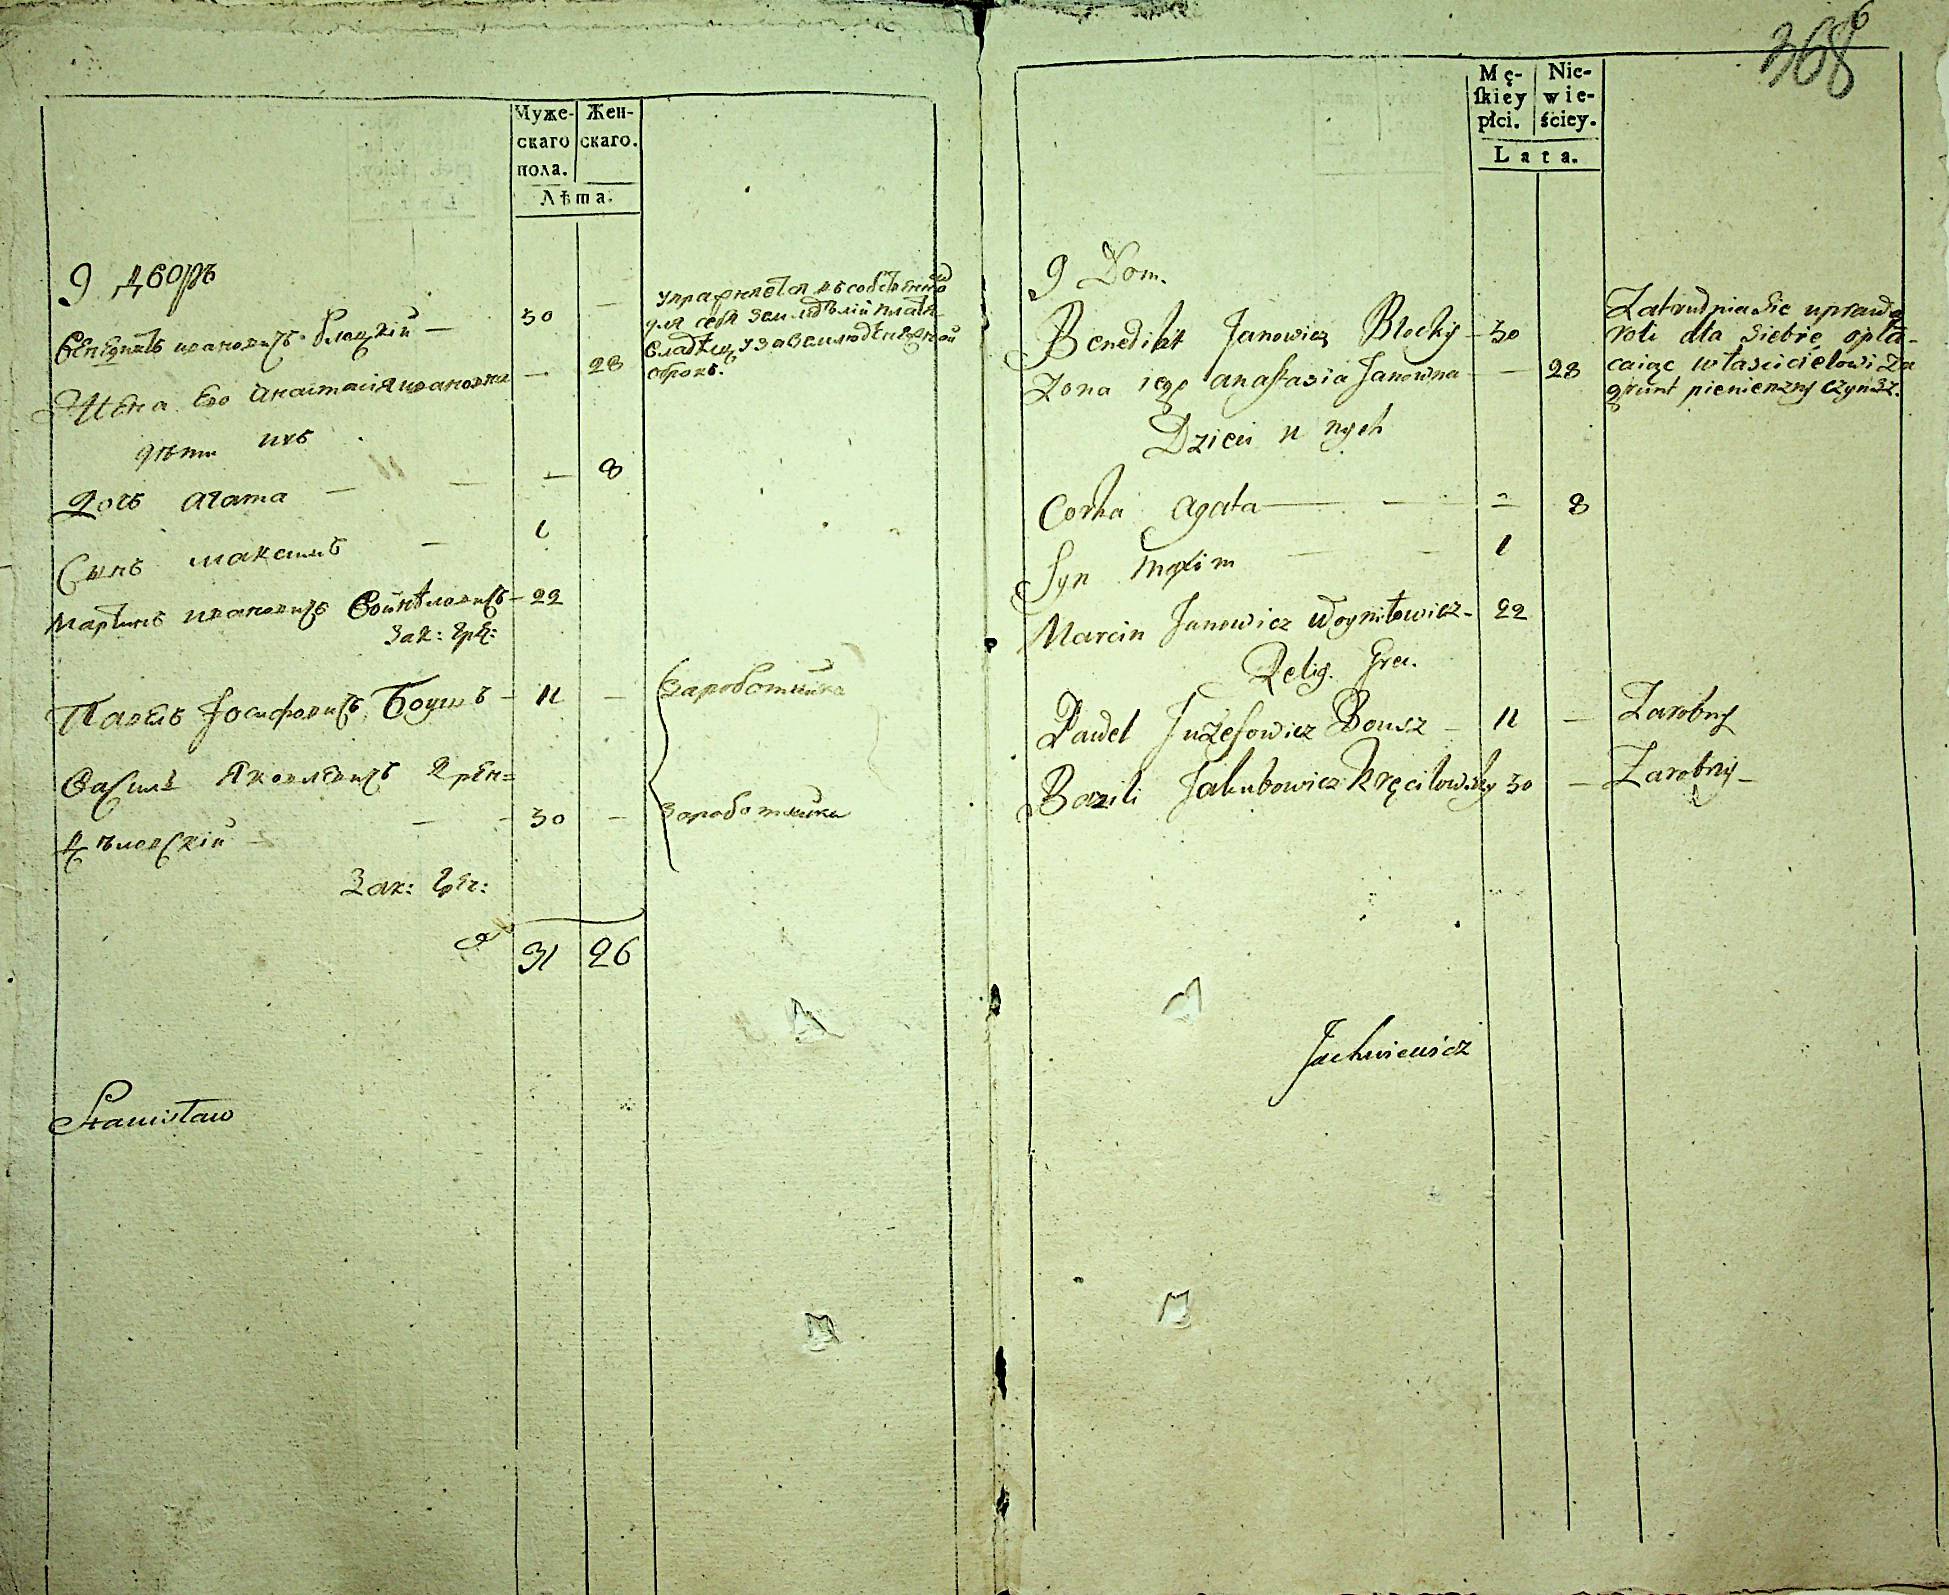 368
6
Муже-
скаго
пола.
Жен-
скаго.
Лѣта.
9 дворъ
Бенедиктъ ивановичъ блоцкій — 30 —
упражняется въ собственно
для себя земледѣліи платя
владѣльцу за землю денежной
оброкъ.
Жена Его Анастасія ивановна — 28
дѣти ихъ
Дочь агата — — — 8
Сынъ максимъ — 1
Мартинъ ивановичъ Войниловичъ — 22
Зак: гре:
Павелъ Іосифовичъ Боушъ — 11 — Заработчика
Василь Яковлевичъ Крен=
цѣловскій — — - 30 — Заработчика
Зак: Гре:
31 26
Stanisław
Mę-
ſkiey
płci.
Nie-
wie-
ściey.
Lata.
9 Dom.
Benedikt Janowicz Błocky - 30
Zatrudnia sie uprawą
roli dla siebie opła-
caiąc właścicielowi za
grunt pienienzny czynsz.
Zona iego anastasia Janowna — — 28
Dzieci u nych
Corka agata — — = 8
Syn Maxim — - 1
Marcin Janowicz Woyniłowicz - 22
Relig. Gre.
Paweł Juzefowicz Bousz — 11 — Zarobny
Bazili Jakubowicz Kręciłowsky 30 — Zarobny -
Jachwiewicz